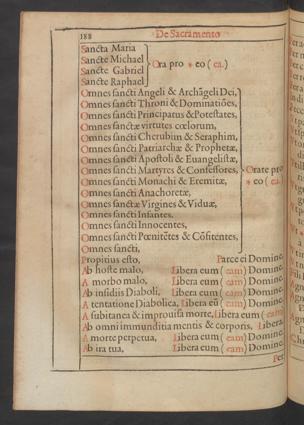 188 De Sacramento
Sancta Maria
Sancte Michael
Sancte Gabriel
Sancte Raphael
Ora pro * eo (ea.)
Omnes sancti Angeli & Archãgeli Dei,
Omnes sancti Throni & Dominatiões,
Omnes sancti Principatus & Potestates,
Omnes sanctæ virtutes cœlorum,
Omnes sancti Cherubim & Seraphim,
Omnes sancti Patriarchæ & Prophetæ,
Omnes sancti Apostoli & Euangelistæ,
Omnes sancti Martyres & Confessores,
Omnes sancti Monachi & Eremitæ,
Omnes sancti Anachoretæ,
Omnes sanctæ Virgines & Viduæ,
Omnes sancti Infantes,
Omnes sancti Innocentes,
Omnes sancti Pœnitẽtes & Cõfitentes,
Omnes sancti,
Orate pro
* eo (ea.)
Propitius esto, Parce ei Domine.
Ab hoste malo, Libera eum (eam) Domine,
A morbo malo, Libera eum (eam) Domine,
Ab insidiis Diaboli, Libera eum (eam) Domine,
A tentatione Diabolica, Libera eũ (eam) Domine,
A subitanea & improuisa morte, Libera eum (eam)
Ab omni immunditia mentis & corporis, Libera,
A morte perpetua, Libera eum (eam) Domine,
Ab ira tua, Libera eum (eam) Domine,
Per